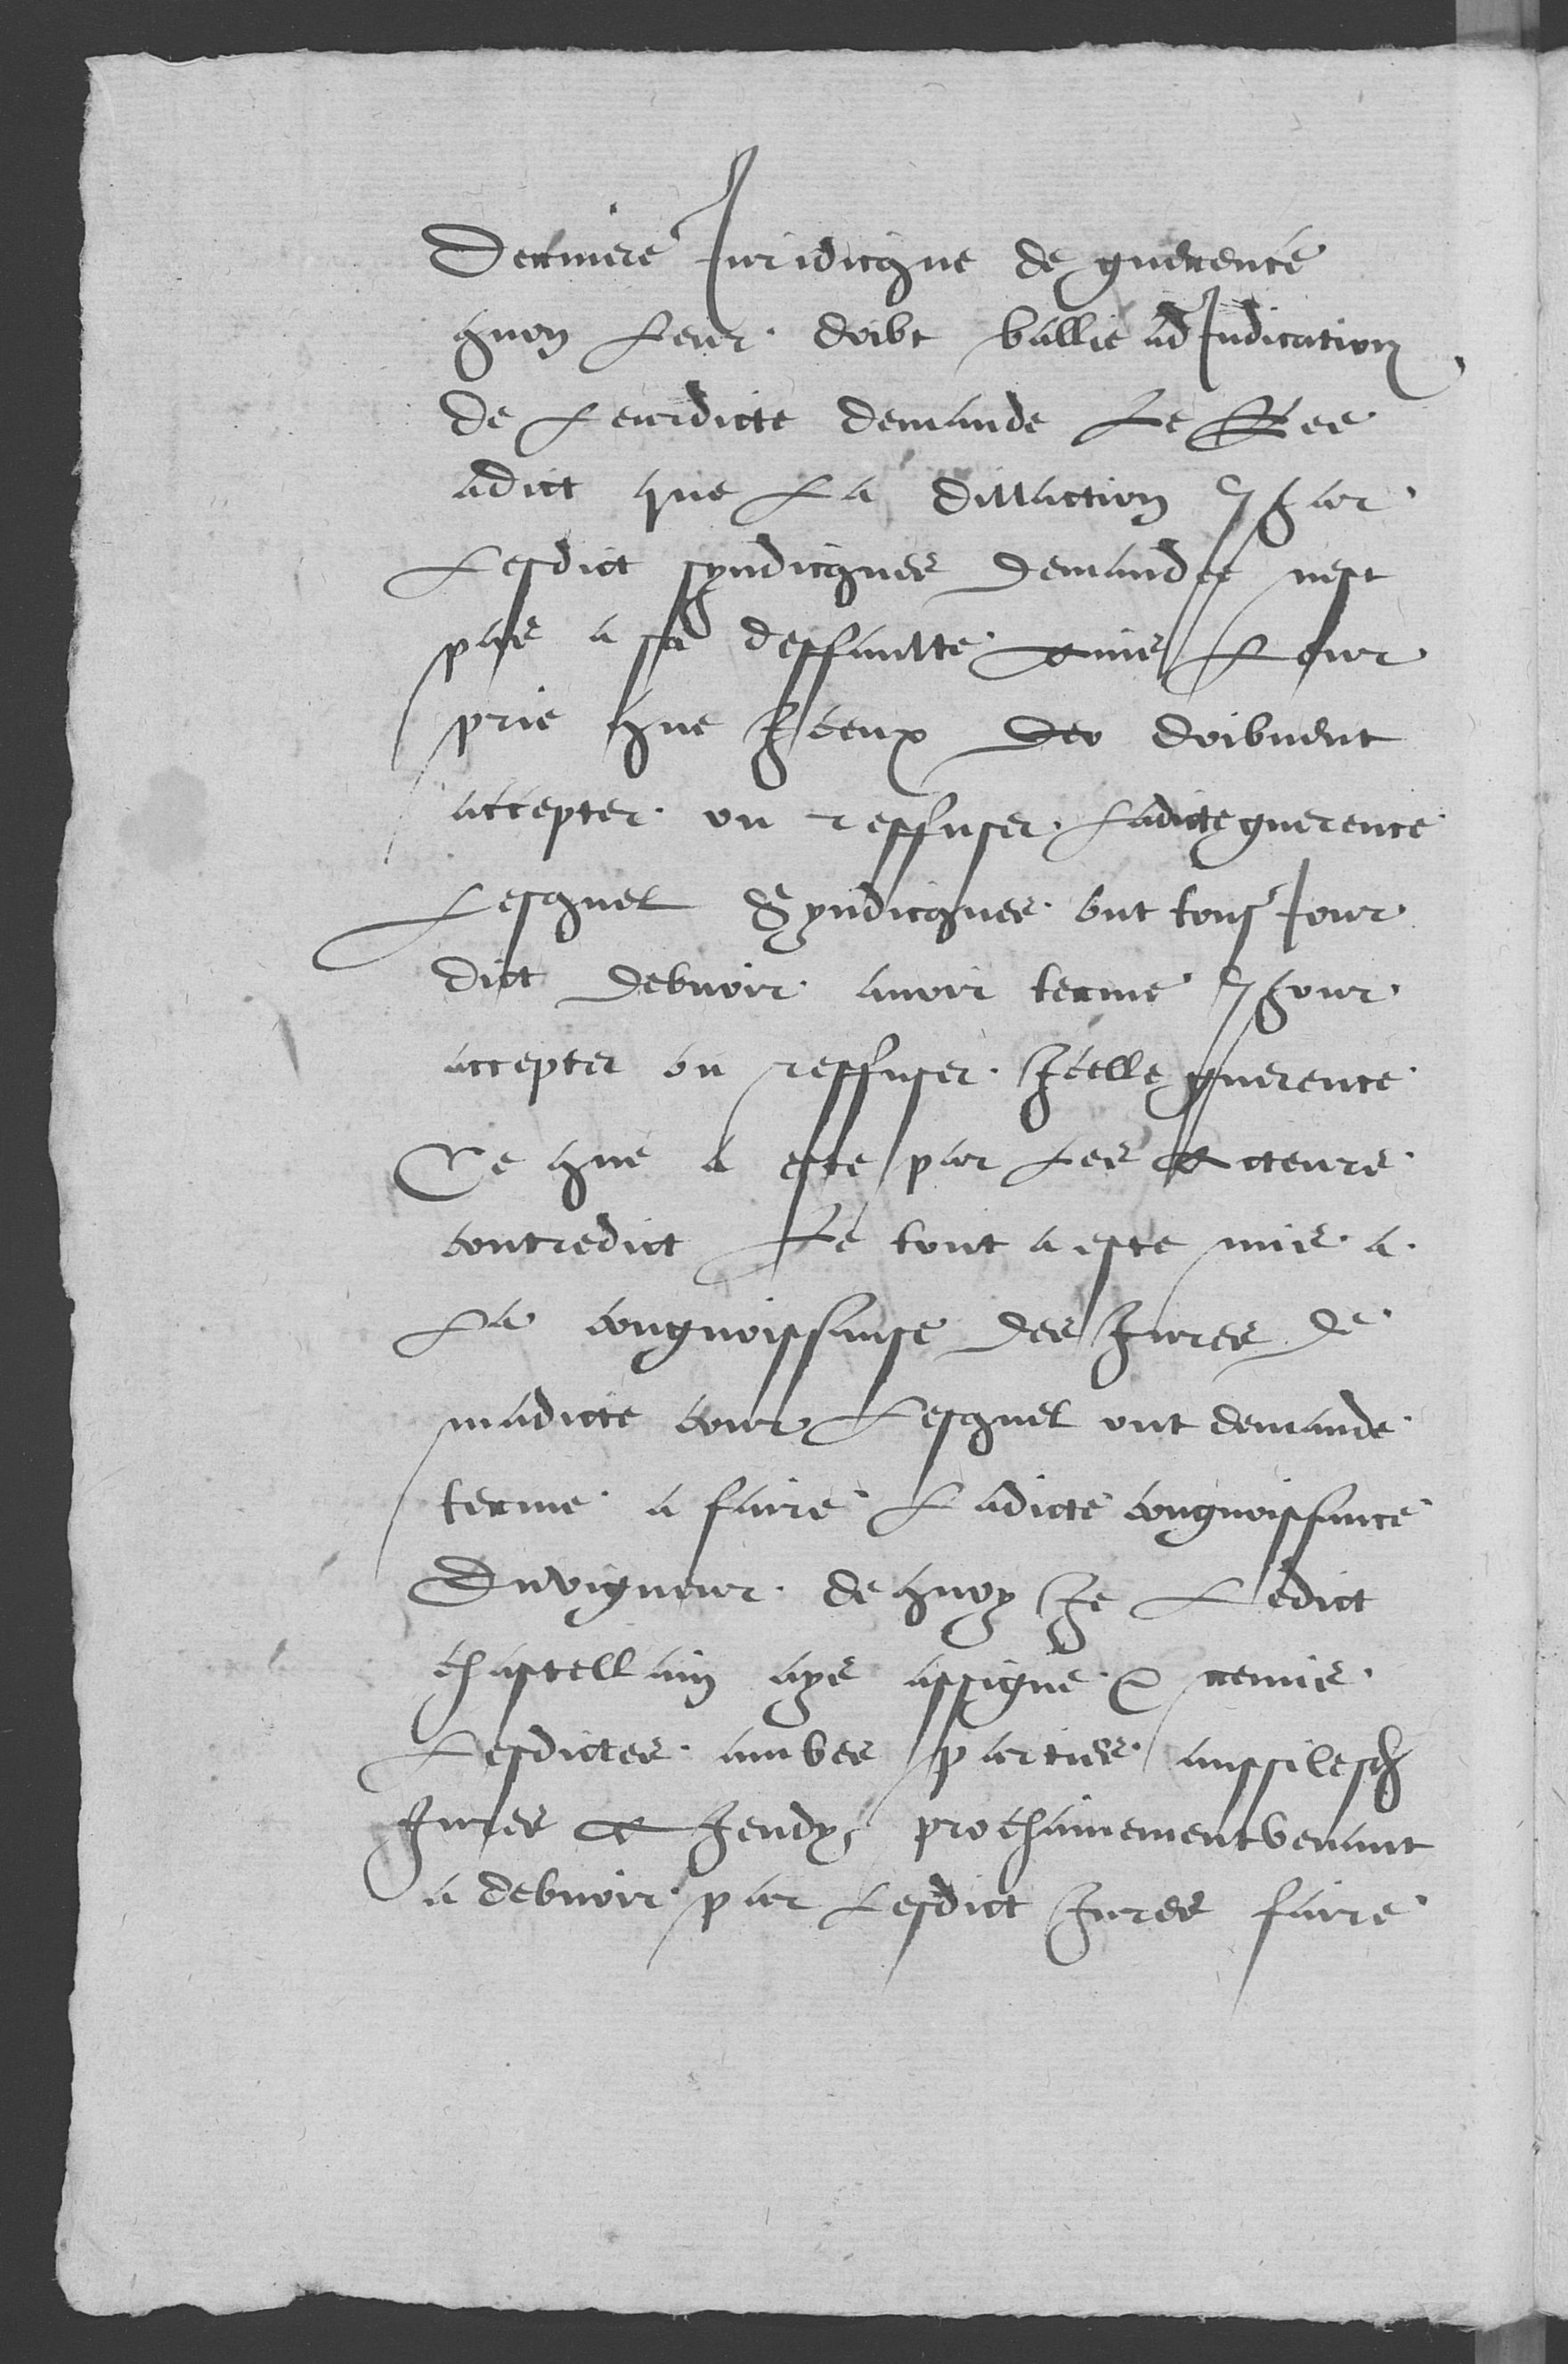 Derniere Juridicque de guerence
quon Leur doibt ballie ad Judication
de Leurdicte demande Le Ree
adict que La dillaction par
Lesdict syndicques demandee nest
pas a sa deffaultte ains Leur
prie que Iceux doibuent
accepter ou reffuser Ladicte guerence
Lesquel Syndicques ont tous Jour
dict debuoir auoir terme pour
accepter ou reffuser Icelle guerence
Ce que a este par Les Acteurs
contredict Le tout a este mis a
La cougnoissanse des Jures de
madicte cour Lesquel ont demande
terme a faire Ladicte cougnoissance
Envigueur de quoy Je Ledict
chastellain ays assigne & remis
Lesdictes ambes parties aussi lesd
Jures A Jeudy prochainement venant
a debuoir par Lesdict Jures faire